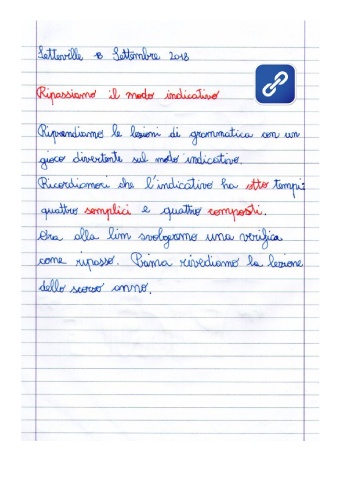 Letteville 18 Settembre 2018
Ripassiamo il modo indicativo
Riprendiamo le lezioni di grammatica con un
gioco divertente sul modo indicativo.
Ricordiamoci che l'indicativo ha otto tempi:
quattro semplici e quattro composti.
Ora alla lim svolgeremo una verifica
come ripasso. Prima rivediamo la lezione
dello scorso anno.